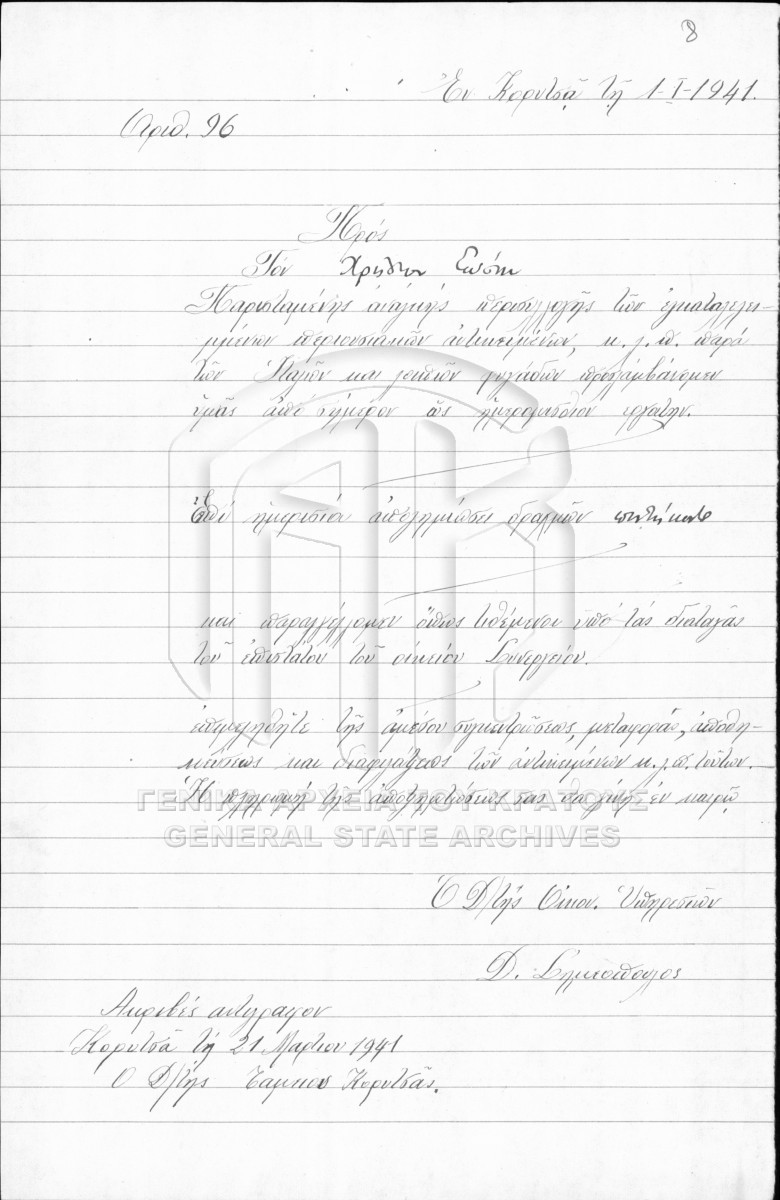 8
Ἐν Κορυτσᾷ τῇ 1-I-1941.
Αριθ. 96
Πρός
Τόν Χρῆστον
Παρισταμένης ἀνάγκης περισυλλογῆς τῶν ἐγκαταλελει-
μμένων περιουσιακῶν ἀντικειμένων, κ.λ.π. παρά
τῶν Ἰταλῶν και λοιπῶν φυγάδων προσλαμβάνομεν
ὑμᾶς ἀπό σήμερον ὡς ἡμερομίσθιον ἐργάτην.
Ἐπί ἡμερησίᾳ ἀποζημιώσει δραχμῶν πενήντα
και παραγγέλλομεν ὅπως τιθέμενοι ὑπό τάς διαταγάς
τοῦ ἐπιστάτου τοῦ οἰκείου Συνεργείου.
ἐπιμεληθῆτε τῆς ἀμέσου συγκεντρώσεως, μεταφορᾶς, ἀποθη-
κεύσεως και διαφυλάξεως τῶν ἀντικειμένων κ.λ.π. τούτων.
Ἡ πληρωμή τῆς ἀποζημιώσεώς σας θα γίνῃ ἐν καιρῷ
ΓΕΝΙΚΑ ΑΡΧΕΙΑ ΤΟΥ ΚΡΑΤΟΥΣ
GENERAL STATE ARCHIVES
Ὁ Δ/τής Οἰκον. Ὑπηρεσιῶν
Δ.
Ακριβές αντίγραφον
Κορυτσᾶ τῇ 21 Μαρτίου 1941
Ο Δ/τής Ταμείου Κορυτσᾶς.